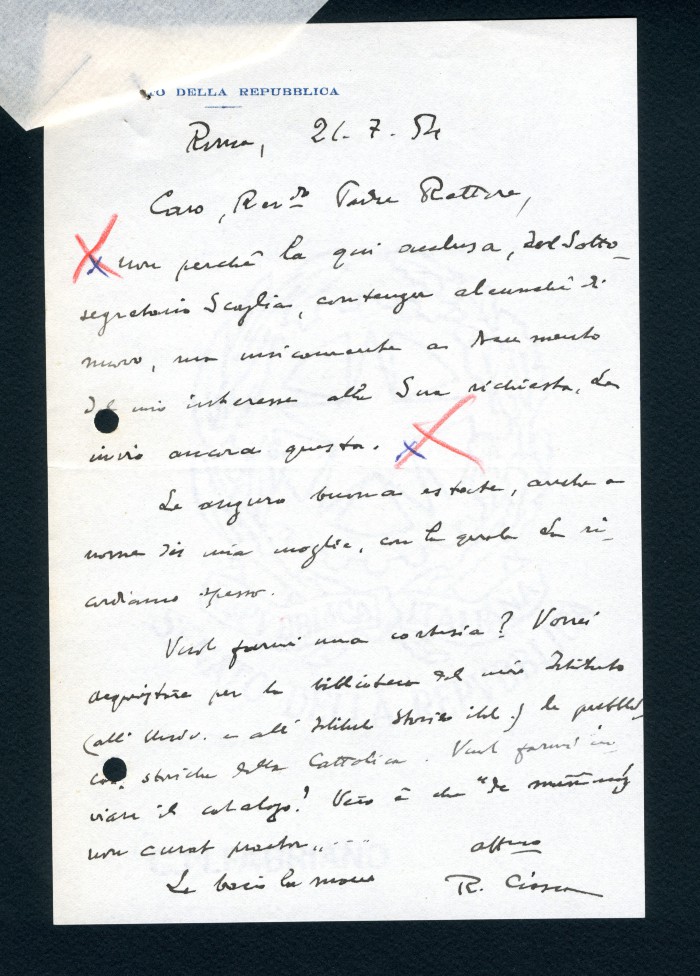 TO DELLA REPUBBLICA
Roma, 21.7.54
Caro, Rev.do Padre Rettore,
non perché la qui acclusa, del Sotto-
segretario Scaglia, contenga alcunché di
nuovo, ma unicamente a documento
del mio interesse alla Sua richiesta, La
invio ancora questa.
Le auguro buona estate, anche a
nome di mia moglie, con la quale La ri-
cordiamo spesso.
Vuol farmi una cortesia? Vorrei
acquistare per la biblioteca del mio Istituto
(all' Univ. e all' Istituto Storico ital.) le pubbli
storiche della Cattolica. Vuol farmi in-
viare il catalogo? Vero è che "de
non curat praetor"...
Le bacio la mano
aff.mo
R. Ciasca